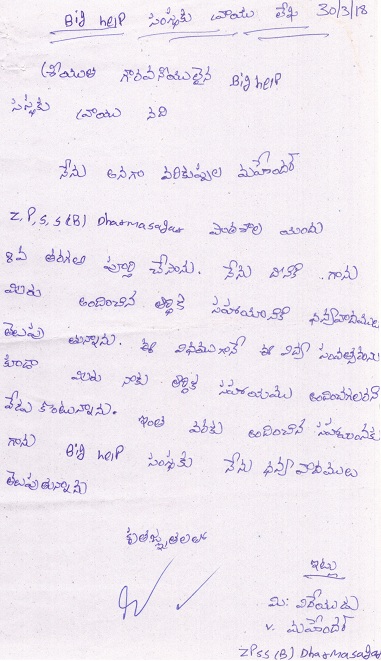 Big help సంస్థకు వ్రాయు లేఖ 30/3/18
శ్రీయుత గౌరవనీయులైన Big help
సంస్థకు వ్రాయు నది
నేను అనగా వరికుప్పల మహేందర్
Z,P,S,S (B) Dharmasagar పాఠశాల యందు
8వ తరగతి పూర్తి చేసాను. నేను దానికి గాను
మీరు అందించిన ఆర్థిక సహాయానికి ధన్యవాదములు
తెలుపు తున్నాను. ఈ విధముగానే ఈ విద్యా సంవత్సరమును
కూడా మీరు నాకు ఆర్థిక సహాయము అందించగలరని
వేడు కొంటున్నాను. ఇంత వరకు అందించిన సహాయంకు
గాను Big help సంస్థకు నేను ధన్యవాదములు
తెలుపుతున్నాను
కృతజ్ఞతలతో
ఇట్లు
మీ: విధేయుడు
V. మహేందర్
ZPSS (B) Dharmasagar